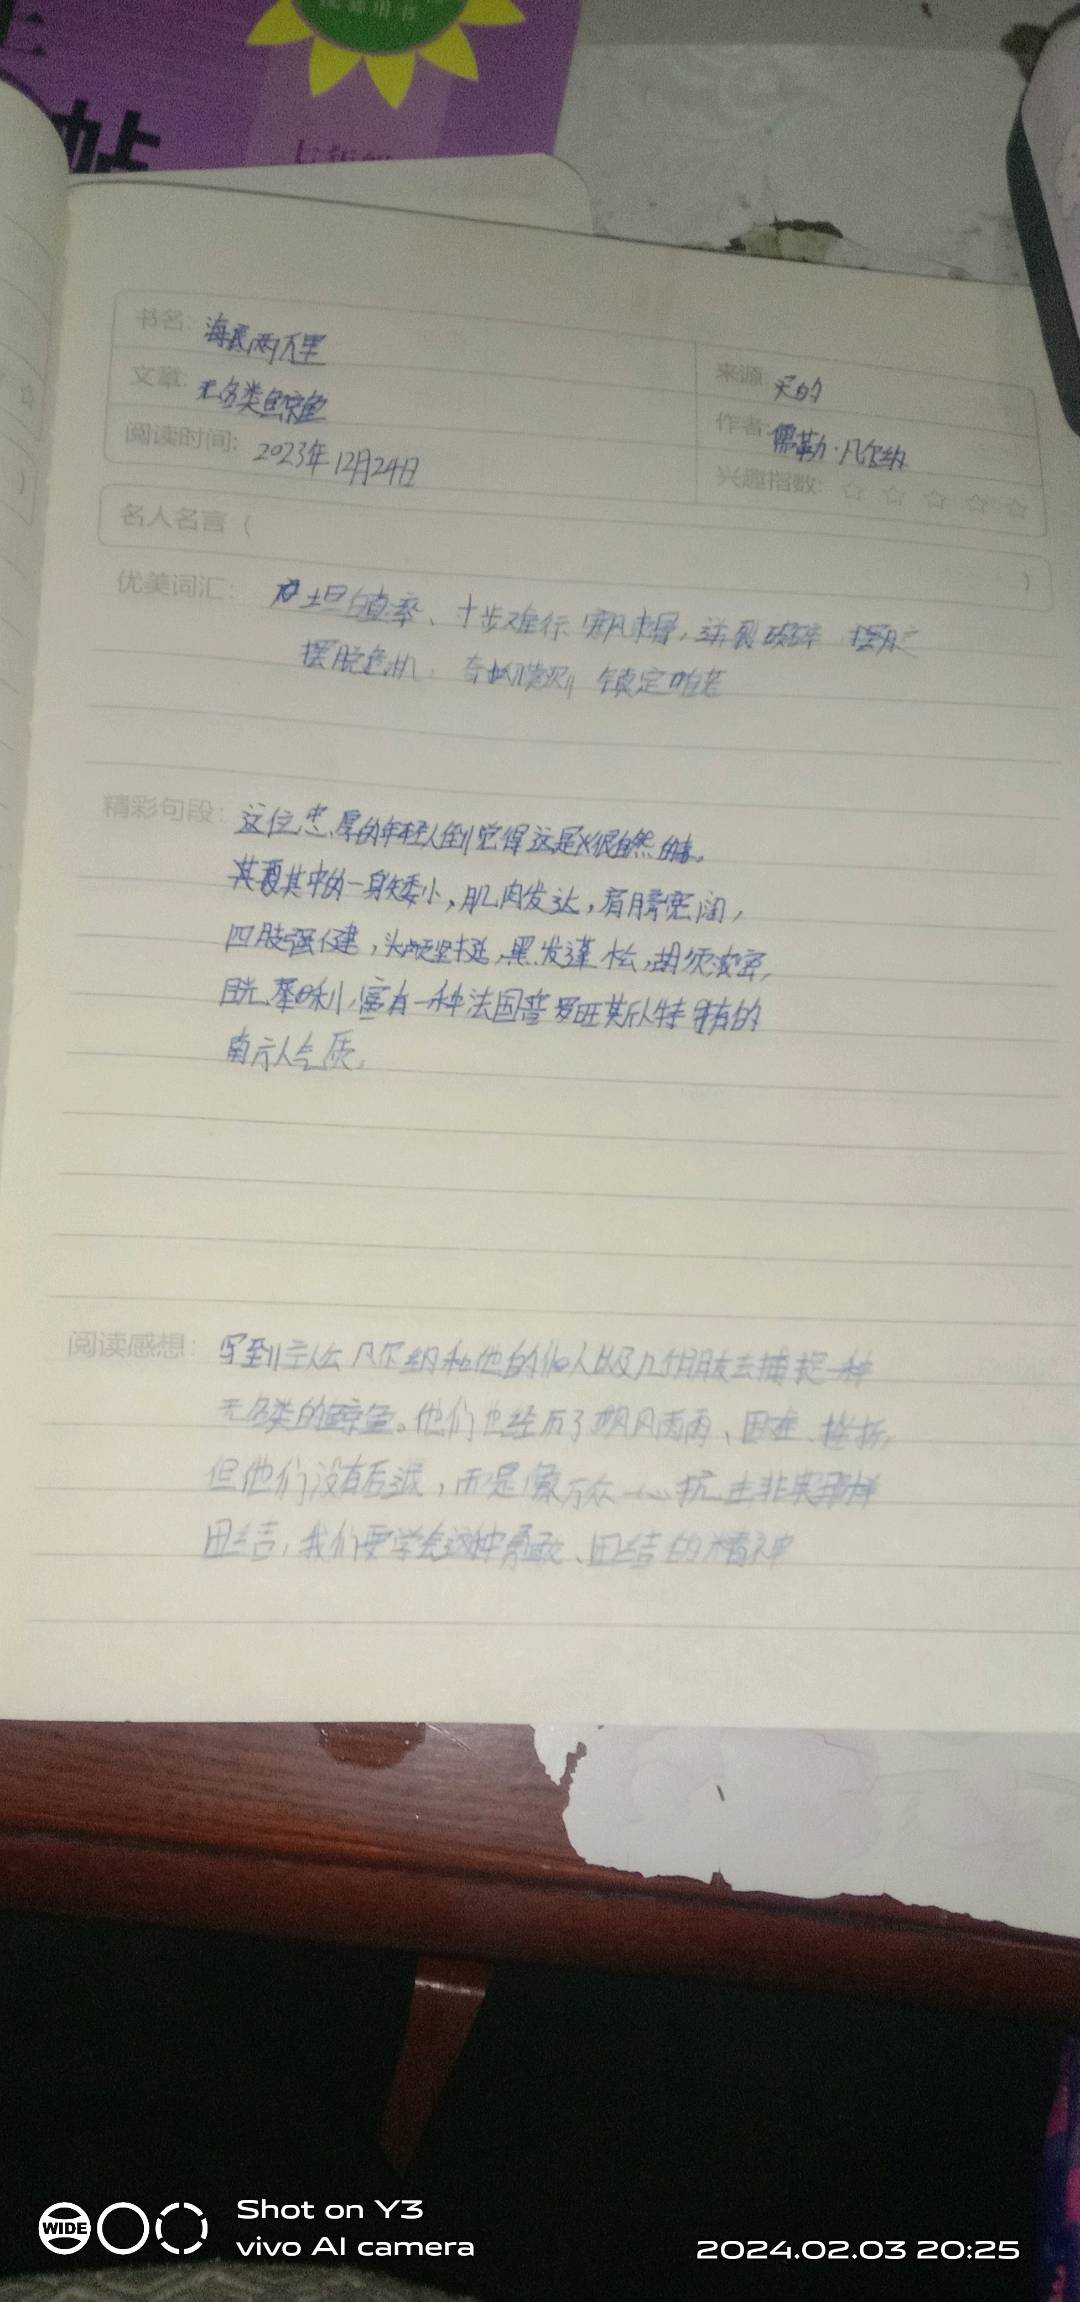 帖
七年级
书名: 海底两万里
来源: 买的
文章: 无名类鲸鱼
作者: 儒勒·凡尔纳
阅读时间: 2023年12月24日
兴趣指数: ☆ ☆ ☆ ☆ ☆
名人名言 ( )
优美词汇: 坦白直率、寸步难行 寒风刺骨, 迸裂破碎 摆脱
摆脱危机,
精彩句段: 这位忠厚的年轻人倒觉得这是 很自然的事。
其中的一身矮小,肌肉发达,肩膀宽阔,
四肢强健,头颅坚挺,黑发蓬松,胡须浓密,
富有一种法国普罗旺斯人特有的
南方人气质,
阅读感想: 写到主人公凡尔纳和他的仆人以及几个朋友去捕捉一种
无名类的鲸鱼。他们也经历了 困难、挫折,
但他们没有后退,而是像万众一心抗击非典那样
团结,我们要学会这种勇敢、团结的精神
WIDE
Shot on Y3
vivo AI camera
2024.02.03 20:25